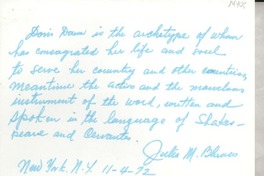 Doris Dana is the archetype of whom
has consagrated her life and soul
to serve her country and other countries,
meantime the action and the marvelous
instrument of the word, written and
spoken in the language of Shakes-
peare and Cervantes.
Julia M. Blanco
New York. N.Y. 11-4-72